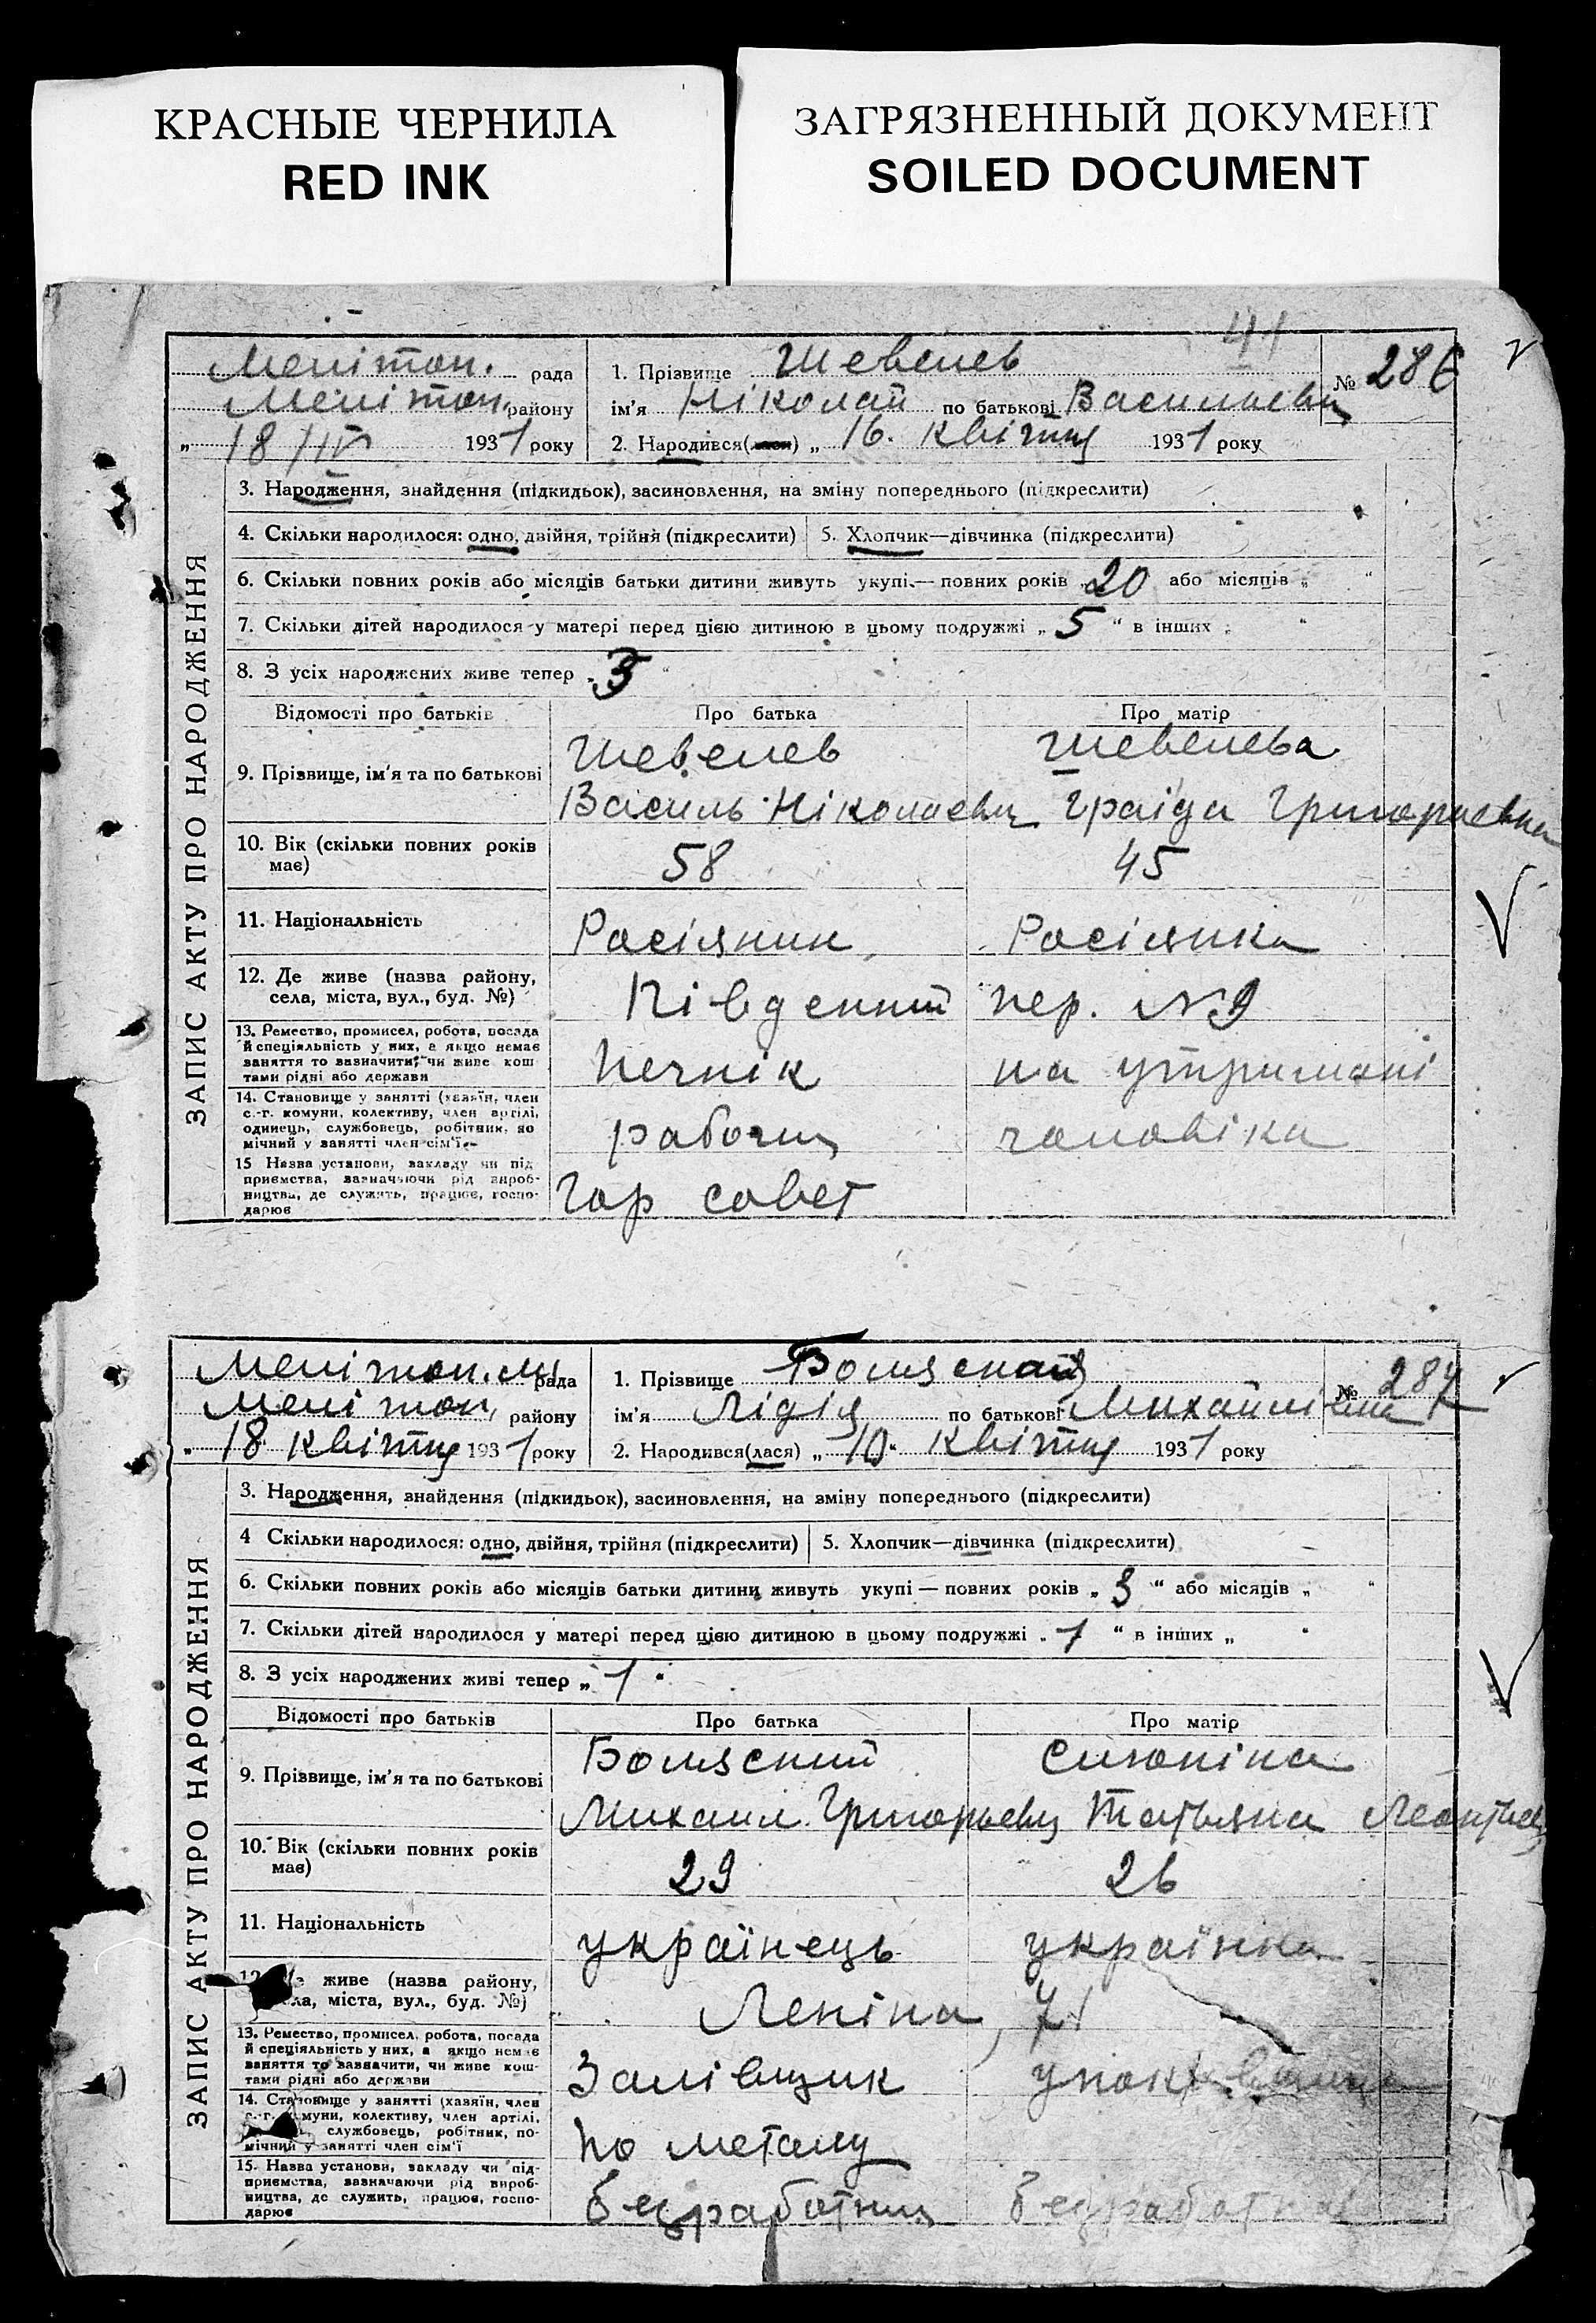 КРАСНЫЕ ЧЕРНИЛА
RED INK
ЗАГРЯЗНЕННЫЙ ДОКУМЕНТ
SOILED DOCUMENT
41
ЗАПИС АКТУ ПРО НАРОДЖЕННЯ
Мелітоп. рада
Мелітоп. району
„ 18/IV 1931 року
1. Прізвище Шевелев
№ 286
ім'я Ніколай по батькові Василиевич
2. Народився(лася) „ 16. квітня 1931 року
3. Народження, знайдення (підкидьок), засиновлення, на зміну попереднього (підкреслити)
4. Скільки народилося: одно, двійня, трійня (підкреслити) 5. Хлопчик—дівчинка (підкреслити)
6. Скільки повних років або місяців батьки дитини живуть укупі — повних років „ 20 або місяців „ “
7. Скільки дітей народилося у матері перед цією дитиною в цьому подружжі „ 5 “ в інших „ “
8. З усіх народжених живе тепер „ 3 “
Відомості про батьків Про батька Про матір
9. Прізвище, ім'я та по батькові Шевелев Шевелева
Василь Ніколаевич Граіда Григориевна
10. Вік (скільки повних років має) 58 45
11. Національність Расіянин Расіянка
12. Де живе (назва району, села, міста, вул., буд. №) Південний пер. №9
13. Ремество, промисел, робота, посада й спеціяльність у них, а якщо немає заняття то зазначити, чи живе коштами рідні або держави Печнік на утримані
14. Становище у занятті (хазяїн, член с.-г. комуни, колективу, член артілі, одинець, службовець, робітник, помічний у занятті член сім'ї рабочий чоловіка
15 Назва установи, закладу чи підприємства, зазначаючи рід виробництва, де служить, працює, господарює Гор совет
ЗАПИС АКТУ ПРО НАРОДЖЕННЯ
Мелітоп. м. рада
Мелітоп. району
„ 18 квітня 1931 року
1. Прізвище Болясная
№ 287
ім'я Лідія по батькові Михайлівна
2. Народився(лася) „ 10 “ квітня 1931 року
3. Народження, знайдення (підкидьок), засиновлення, на зміну попереднього (підкреслити)
4 Скільки народилося: одно, двійня, трійня (підкреслити) 5. Хлопчик—дівчинка (підкреслити)
6. Скільки повних років або місяців батьки дитини живуть укупі — повних років „ 3 “ або місяців „ “
7. Скільки дітей народилося у матері перед цією дитиною в цьому подружжі „ 1 “ в інших „ “
8. З усіх народжених живі тепер „ 1 “
Відомості про батьків Про батька Про матір
9. Прізвище, ім'я та по батькові Болясний
Михаил Григорьевич Татьяна
10. Вік (скільки повних років має) 29 26
11. Національність українець українка
12. Де живе (назва району, села, міста, вул., буд. №) Леніна, 71
13. Ремество, промисел, робота, посада й спеціяльність у них, а якщо немає заняття то зазначити, чи живе коштами рідні або держави Залівщик
14. Становище у занятті (хазяїн, член с.-г. комуни, колективу, член артілі, службовець, робітник, помічний у занятті член сім'ї по металу
15. Назва установи, закладу чи підприємства, зазначаючи рід виробництва, де служить, працює, господарює безработний безработная